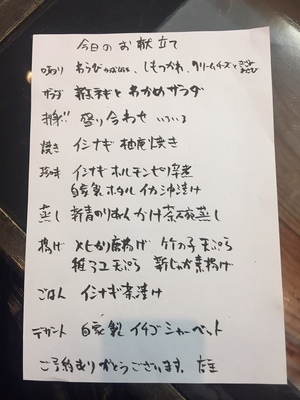 今日のお献立て
わらび 、しもつかれ、クリームチーズと
サラダ 新玉ネギとわかめサラダ
お刺身!! 盛り合わせ いろいろ
焼き イシナギ 柚庵焼き
珍味 イシナギ ホルモンピリ辛煮
自家製 ホタルイカ沖漬け
蒸し 新青のりあんかけ茶碗蒸し
揚げ メヒカリ唐揚げ 竹の子天ぷら
稚アユ天ぷら 新じゃが素揚げ
ごはん イシナギ茶漬け
デザート 自家製 イチゴシャーベット
ご予約ありがとうございます。店主